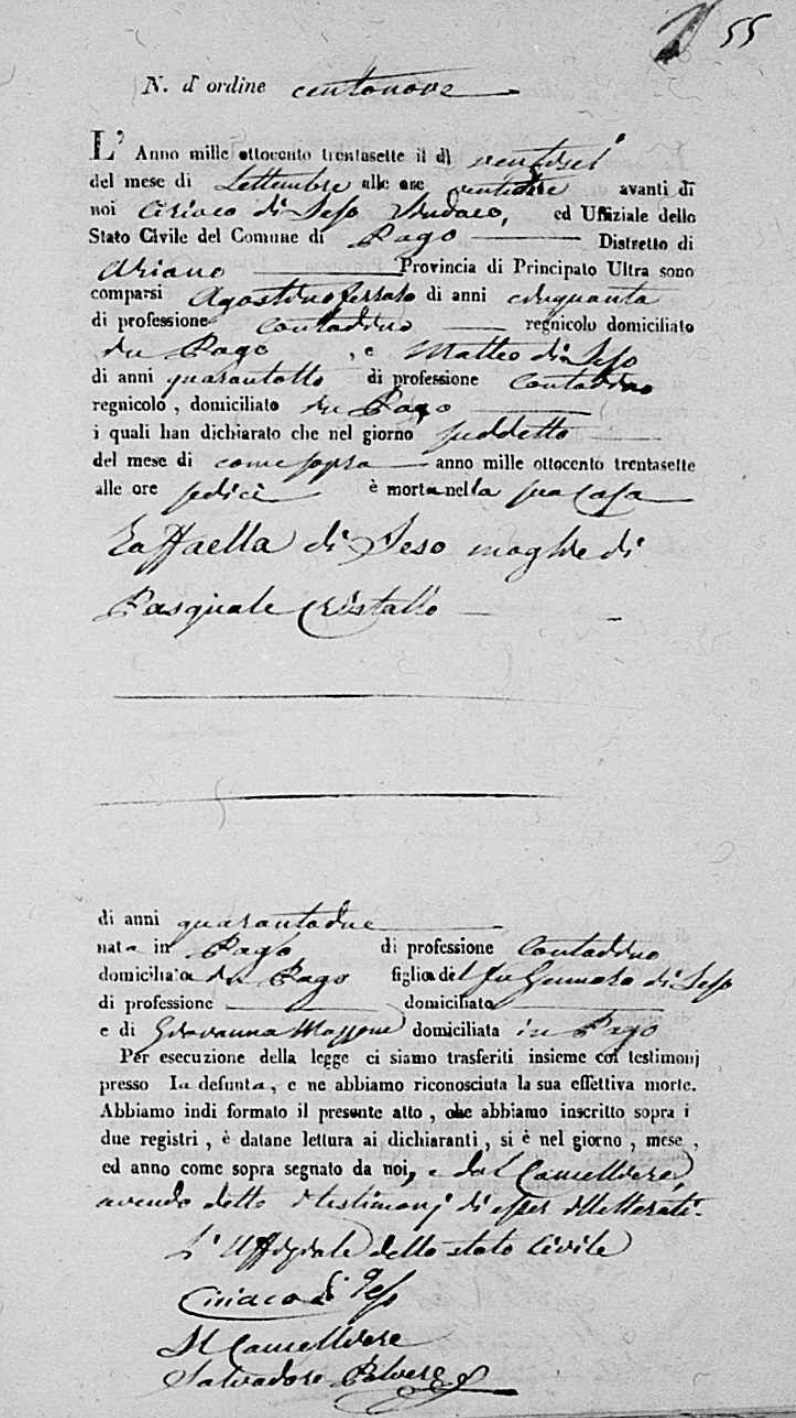 55
N. d'ordine centonove
L' Anno mille ottocento trentasette il dì ventisei
del mese di Settembre alle ore ventidue avanti di
noi Ciriaco di Jeso Sindaco, ed Uffiziale dello
Stato Civile del Comune di Pago Distretto di
Ariano Provincia di Principato Ultra sono
comparsi Agostino ferraro di anni cinquanta
di professione contadino regnicolo domiciliato
in Pago , e Matteo di Jeso
di anni quarantotto di professione contadino
regnicolo , domiciliato in Pago
i quali han dichiarato che nel giorno suddetto
del mese di come sopra anno mille ottocento trentasette
alle ore sedici è morta nella sua casa
Raffaella di Jeso moglie di
Pasquale Cristallo
di anni quarantadue
nata in Pago di professione contadina
domiciliata in Pago figlia del fu Gennaro di Jeso
di professione domiciliato
e di Giovanna domiciliata in Pago
Per esecuzione della legge ci siamo trasferiti insieme coi testimonj
presso la defunta, e ne abbiamo riconosciuta la sua effettiva morte.
Abbiamo indi formato il presente atto , che abbiamo inscritto sopra i
due registri , è datane lettura ai dichiaranti , si è nel giorno , mese ,
ed anno come sopra segnato da noi, e dal Cancelliere,
avendo detto i testimonj di esser illetterati.
L'Uffiziale dello stato Civile
Ciriaco di Jeso
Il Cancelliere
Salvadore